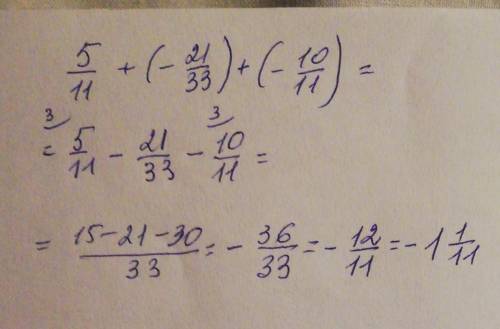 5/11 + (- 21/33) + (- 10/11) =
3 3
= 5/11 - 21/33 - 10/11 =
= 15-21-30/33 = - 36/33 = - 12/11 = - 1 1/11